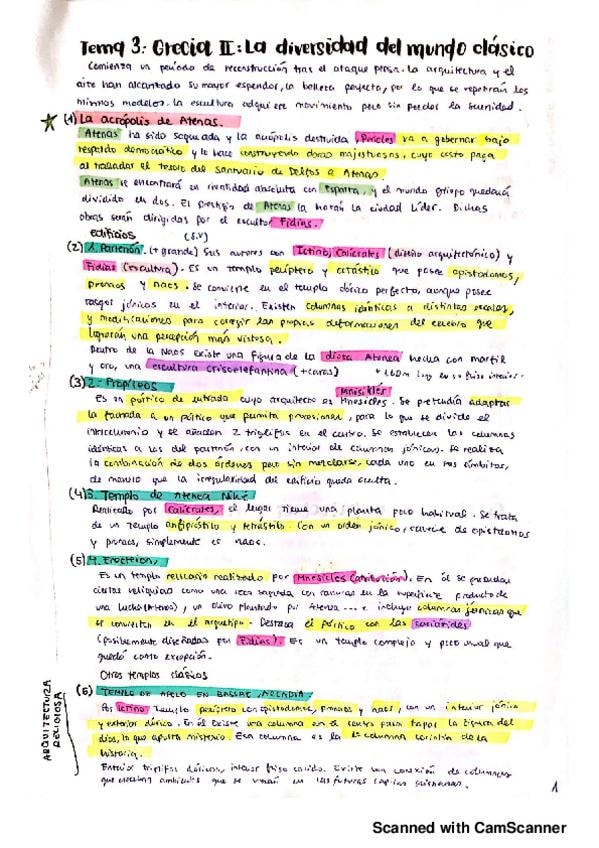 Tema 3.- Grecia II: La diversidad del mundo clásico
Comienza un período de reconstrucción tras el ataque persa. La arquitectura y el
arte han alcanzado su mayor esplendor, la belleza perfecta, por lo que se repetirán los
mismos modelos. La escultura adquiere movimiento pero sin perder la serenidad.
(1) La acrópolis de Atenas.
Atenas ha sido saqueada y la acrópolis destruida, Pericles va a gobernar bajo
respeto democrático y le hace construyendo obras majestuosas, cuyo costo paga
al trasladar el tesoro del santuario de Delfos a Atenas.
Atenas se encontrará en rivalidad absoluta con Esparta, y el mundo griego quedará
dividido en dos. El prestigio de Atenas la harán la ciudad líder. Dichas
obras serán dirigidas por el escultor Fidias.
edificios (s.V)
(2) 1. Partenón. (+ grande) Sus autores son Ictino, Calícrates (diseño arquitectónico) y
Fidias (escultura). Es un templo períptero y octástilo que posee opistodomos,
pronaos y naos. Se convierte en el templo dórico perfecto, aunque posee
rasgos jónicos en el interior. Existen columnas idénticas a distintas escalas,
y modificaciones para corregir las propias deformaciones del cerebro que
lograrán una percepción más vistosa.
Dentro de la Naos existe una figura de la diosa Atenea hecha con marfil
y oro, una escultura crisoelefantina (+caras)
(3) 2.- Propíleos Mnesiklés
Es un pórtico de entrada cuyo arquitecto es Mnesicles. Se pretendía adaptar
la fachada a un pórtico que permita procesiones, para lo que se divide el
intercolumnio y se añaden 2 triglifos en el centro. Se establecen las columnas
idénticas a las del partenón, con un interior de columnas jónicas. Se realiza
la combinación de dos órdenes pero sin mezclarse, cada uno en sus ámbitos,
de manera que la irregularidad del edificio queda oculta.
(4) 3. Templo de Atenea Niké
Realizado por Calícrates, el lugar tiene una planta poco habitual. Se trata
de un templo anfipróstilo y tetrástilo. Con un orden jónico, carece de opistodomos
y pronaos, simplemente es naos.
(5) 4. Erecteion,
Es un templo relicario realizado por Mnesicles (atribución). En él se guardan
ciertas reliquias como una roca sagrada con ranuras en la superficie producto de
una lucha (Atenea), un olivo plantado por Atenea ... e incluye columnas jónicas que
se convierten en el arquetipo. Destaca el pórtico con las cariátides
(posiblemente diseñadas por Fidias). Es un templo complejo y poco usual que
quedó como excepción.
Otros templos clásicos
ARQUITECTURA RELIGIOSA
(6) TEMPLO DE APOLO EN BASSAE, ARCADIA.
Por Ictino. Templo períptero con opistodomos, pronaos y naos, con un interior jónico
y exterior dórico. En él existe una columna en el centro para tapar la figura del
dios, lo que aporta misterio. Esa columna es la 1ª columna corintia de la
historia.
Exterior triglifos dóricos, interior friso corrido. Existe una conexión de columnas
que crean ambientes que se verán en las futuras capillas cristianas.
1
Scanned with CamScanner